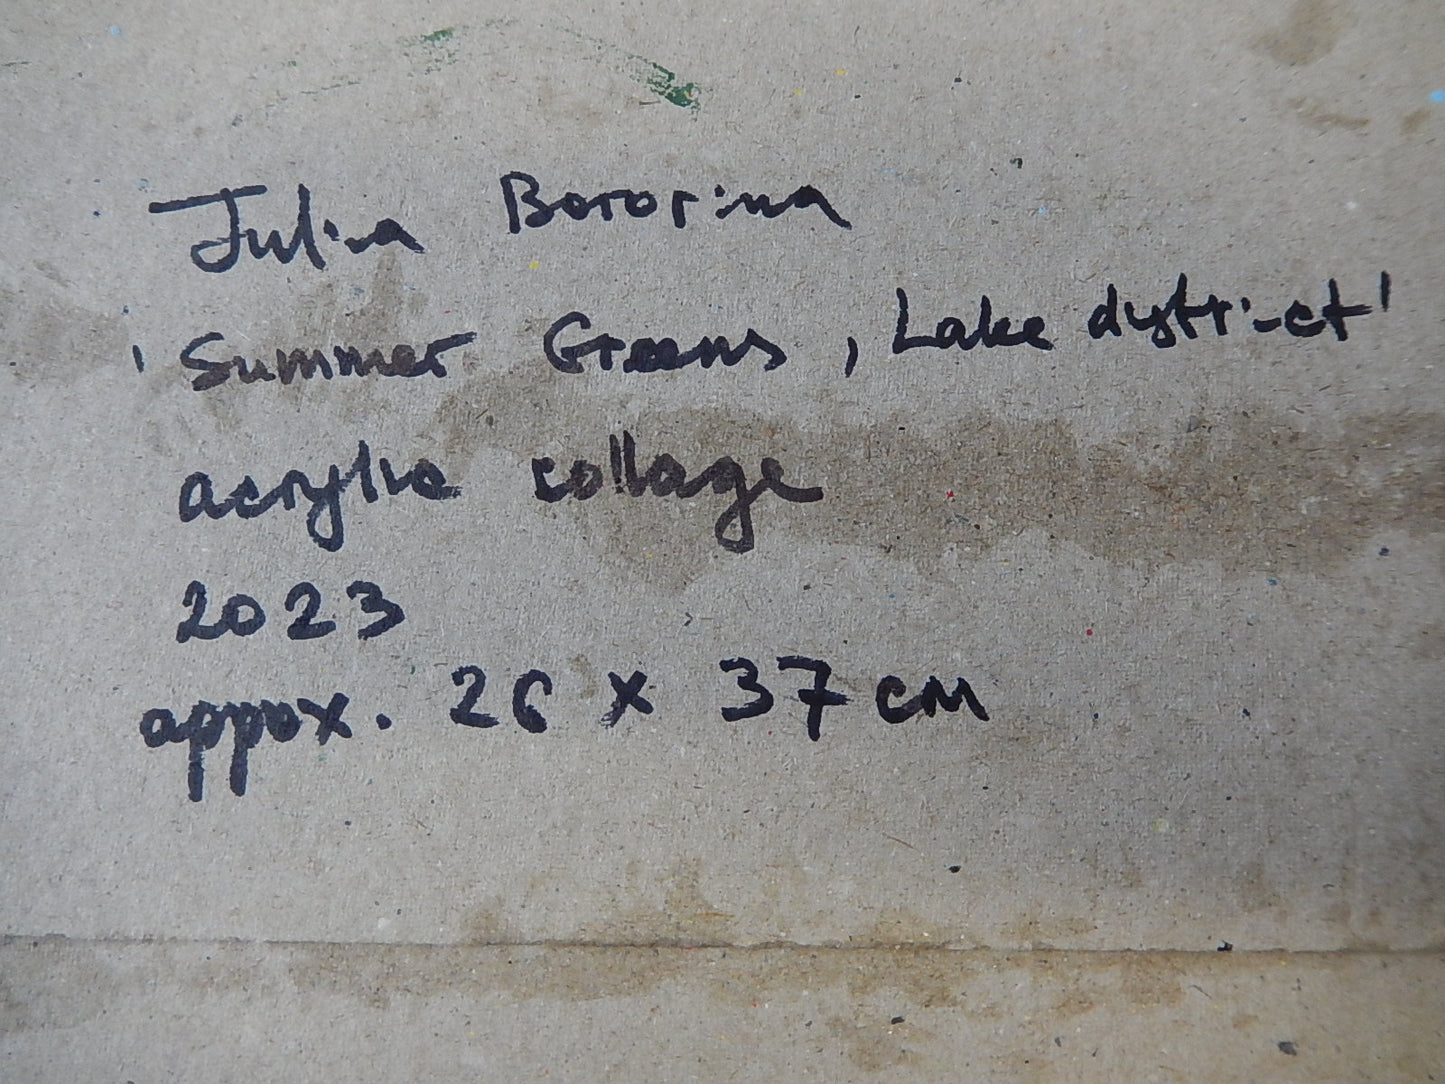 Julia Bororina
'Summer Greens, Lake dystrict'
acrylic collage
2023
approx. 26 x 37 cm